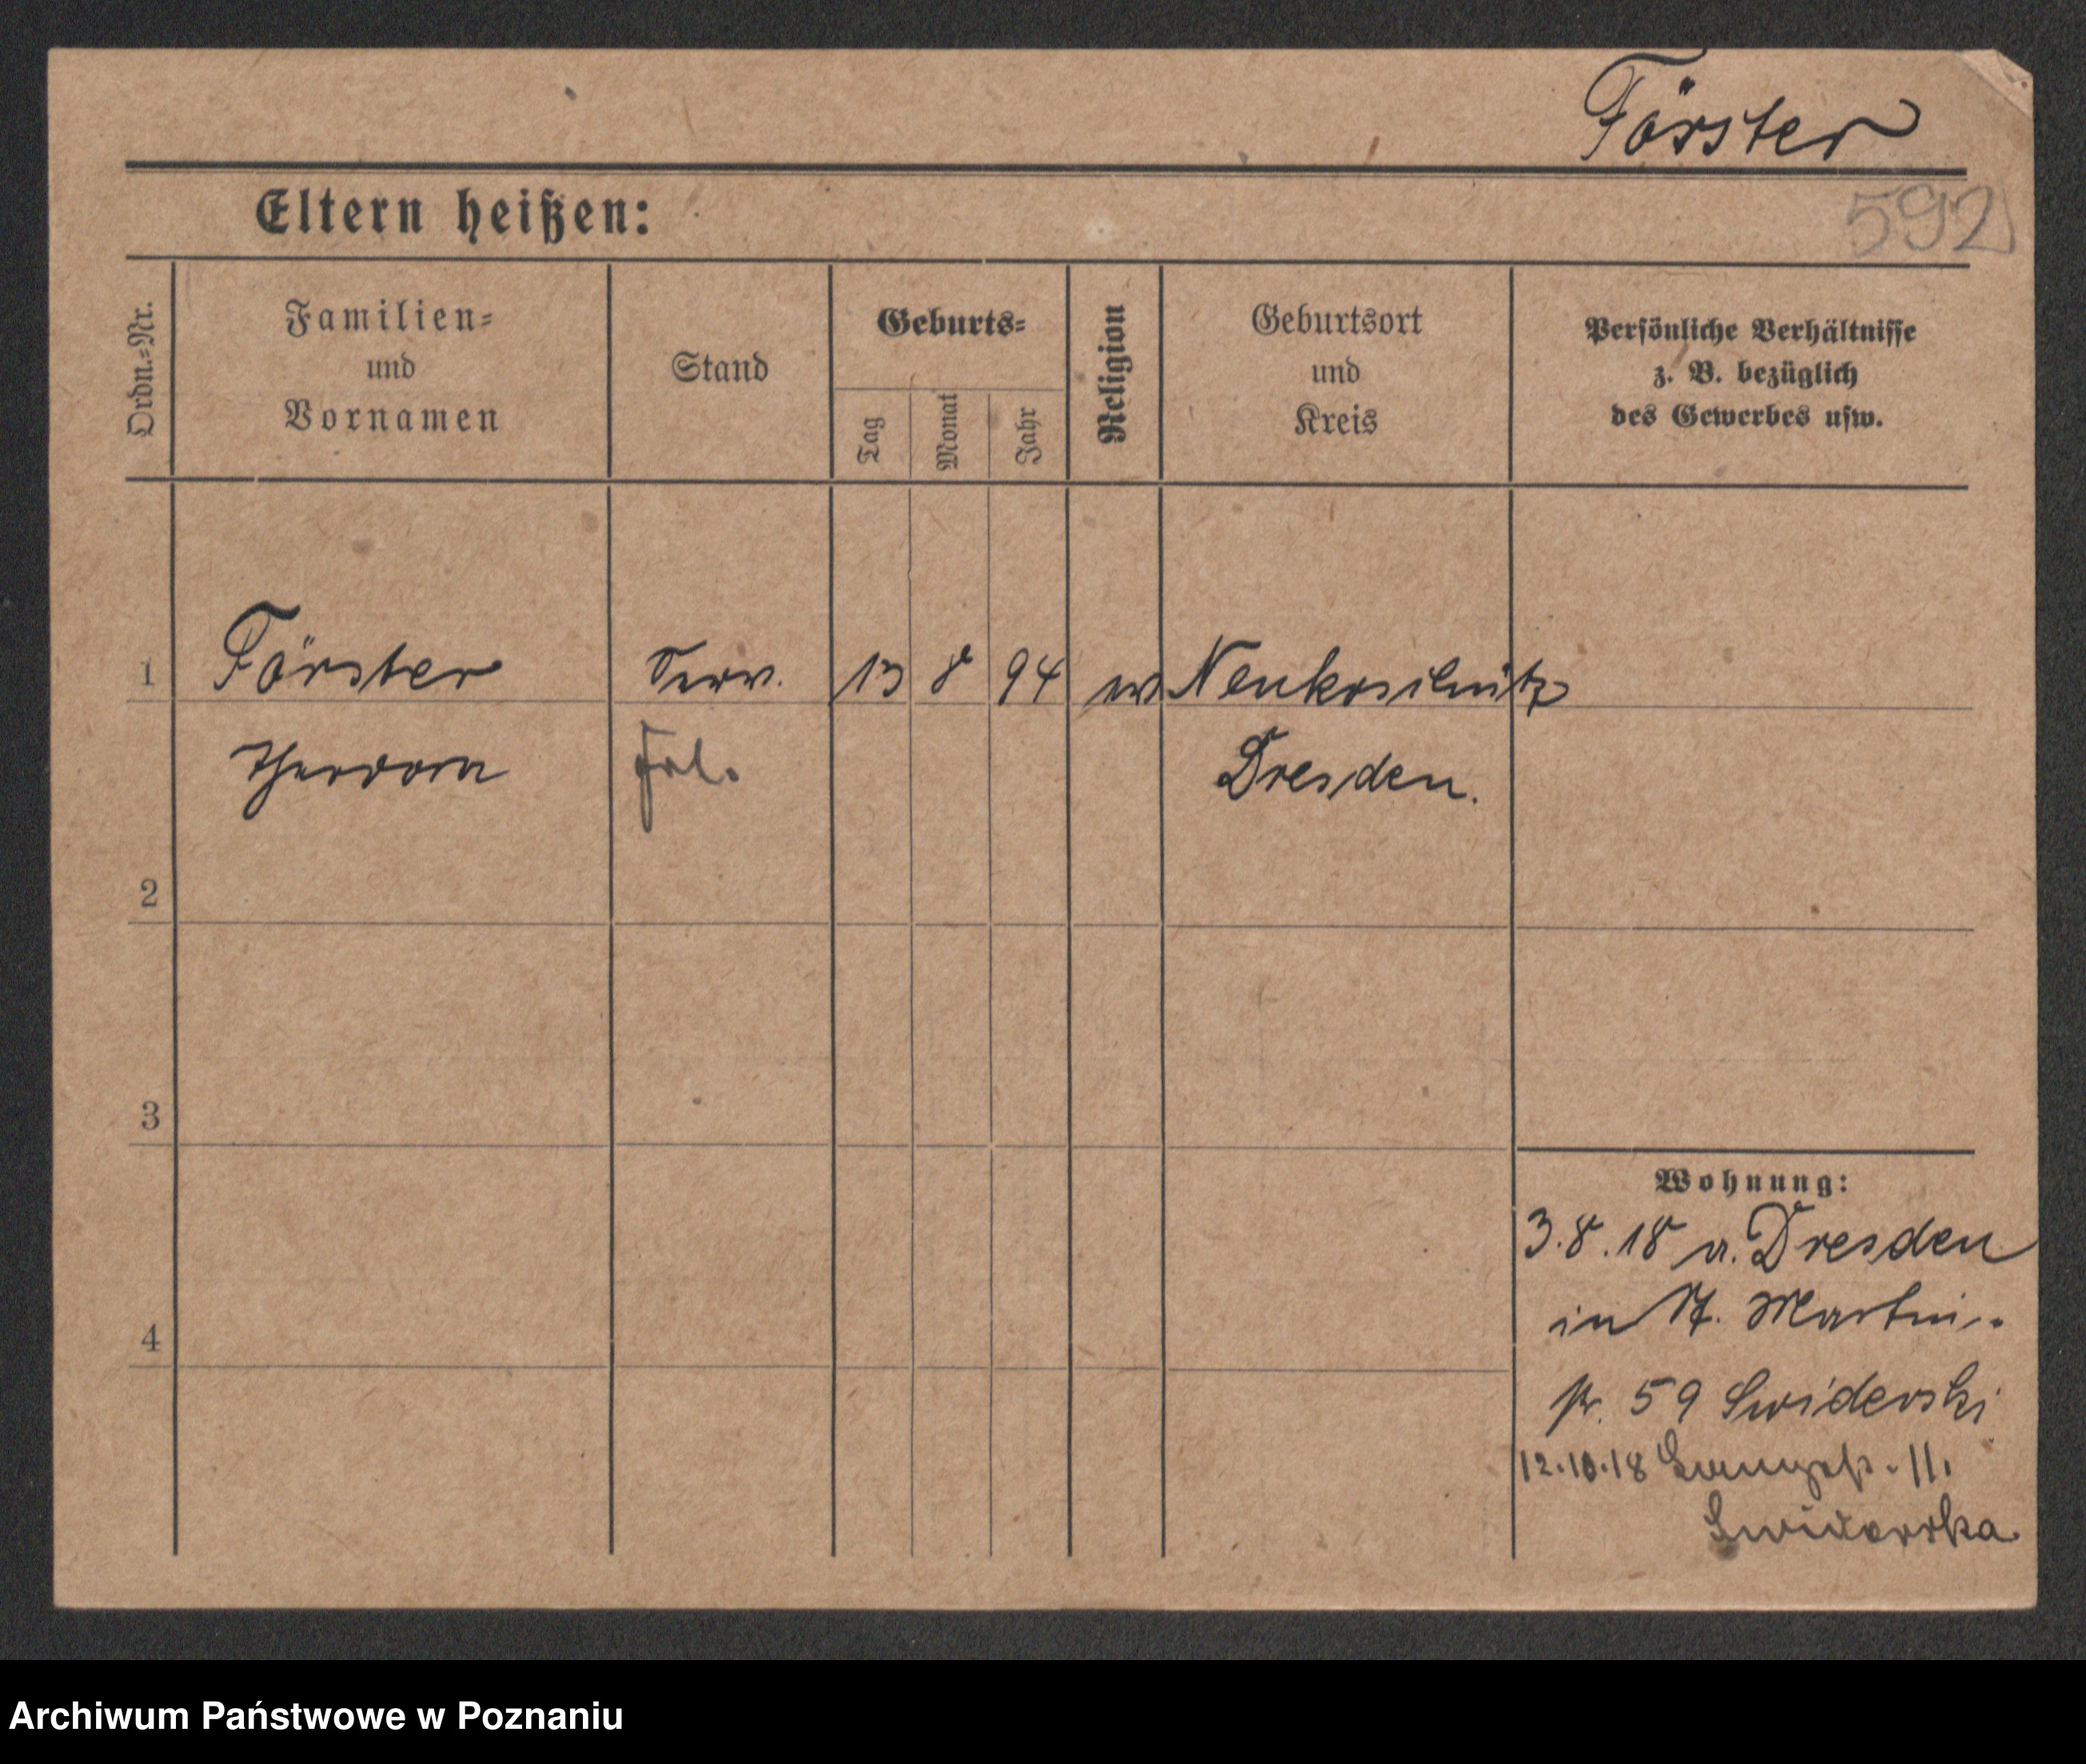 Förster
Eltern heißen:
592
Ordn.-Nr.
Familien-
und
Vornamen
Stand
Geburts-
Tag
Monat
Jahr
Religion
Geburtsort
und
Kreis
Persönliche Verhältnisse
z. B. bezüglich
des Gewerbes usw.
1 Förster 13 8 94
Dresden.
2
3
4
Wohnung:
3.8.18 a. Dresden
in St. Martin-
59 Swiderski
12.10.18 11.
Swiderska
Archiwum Państwowe w Poznaniu